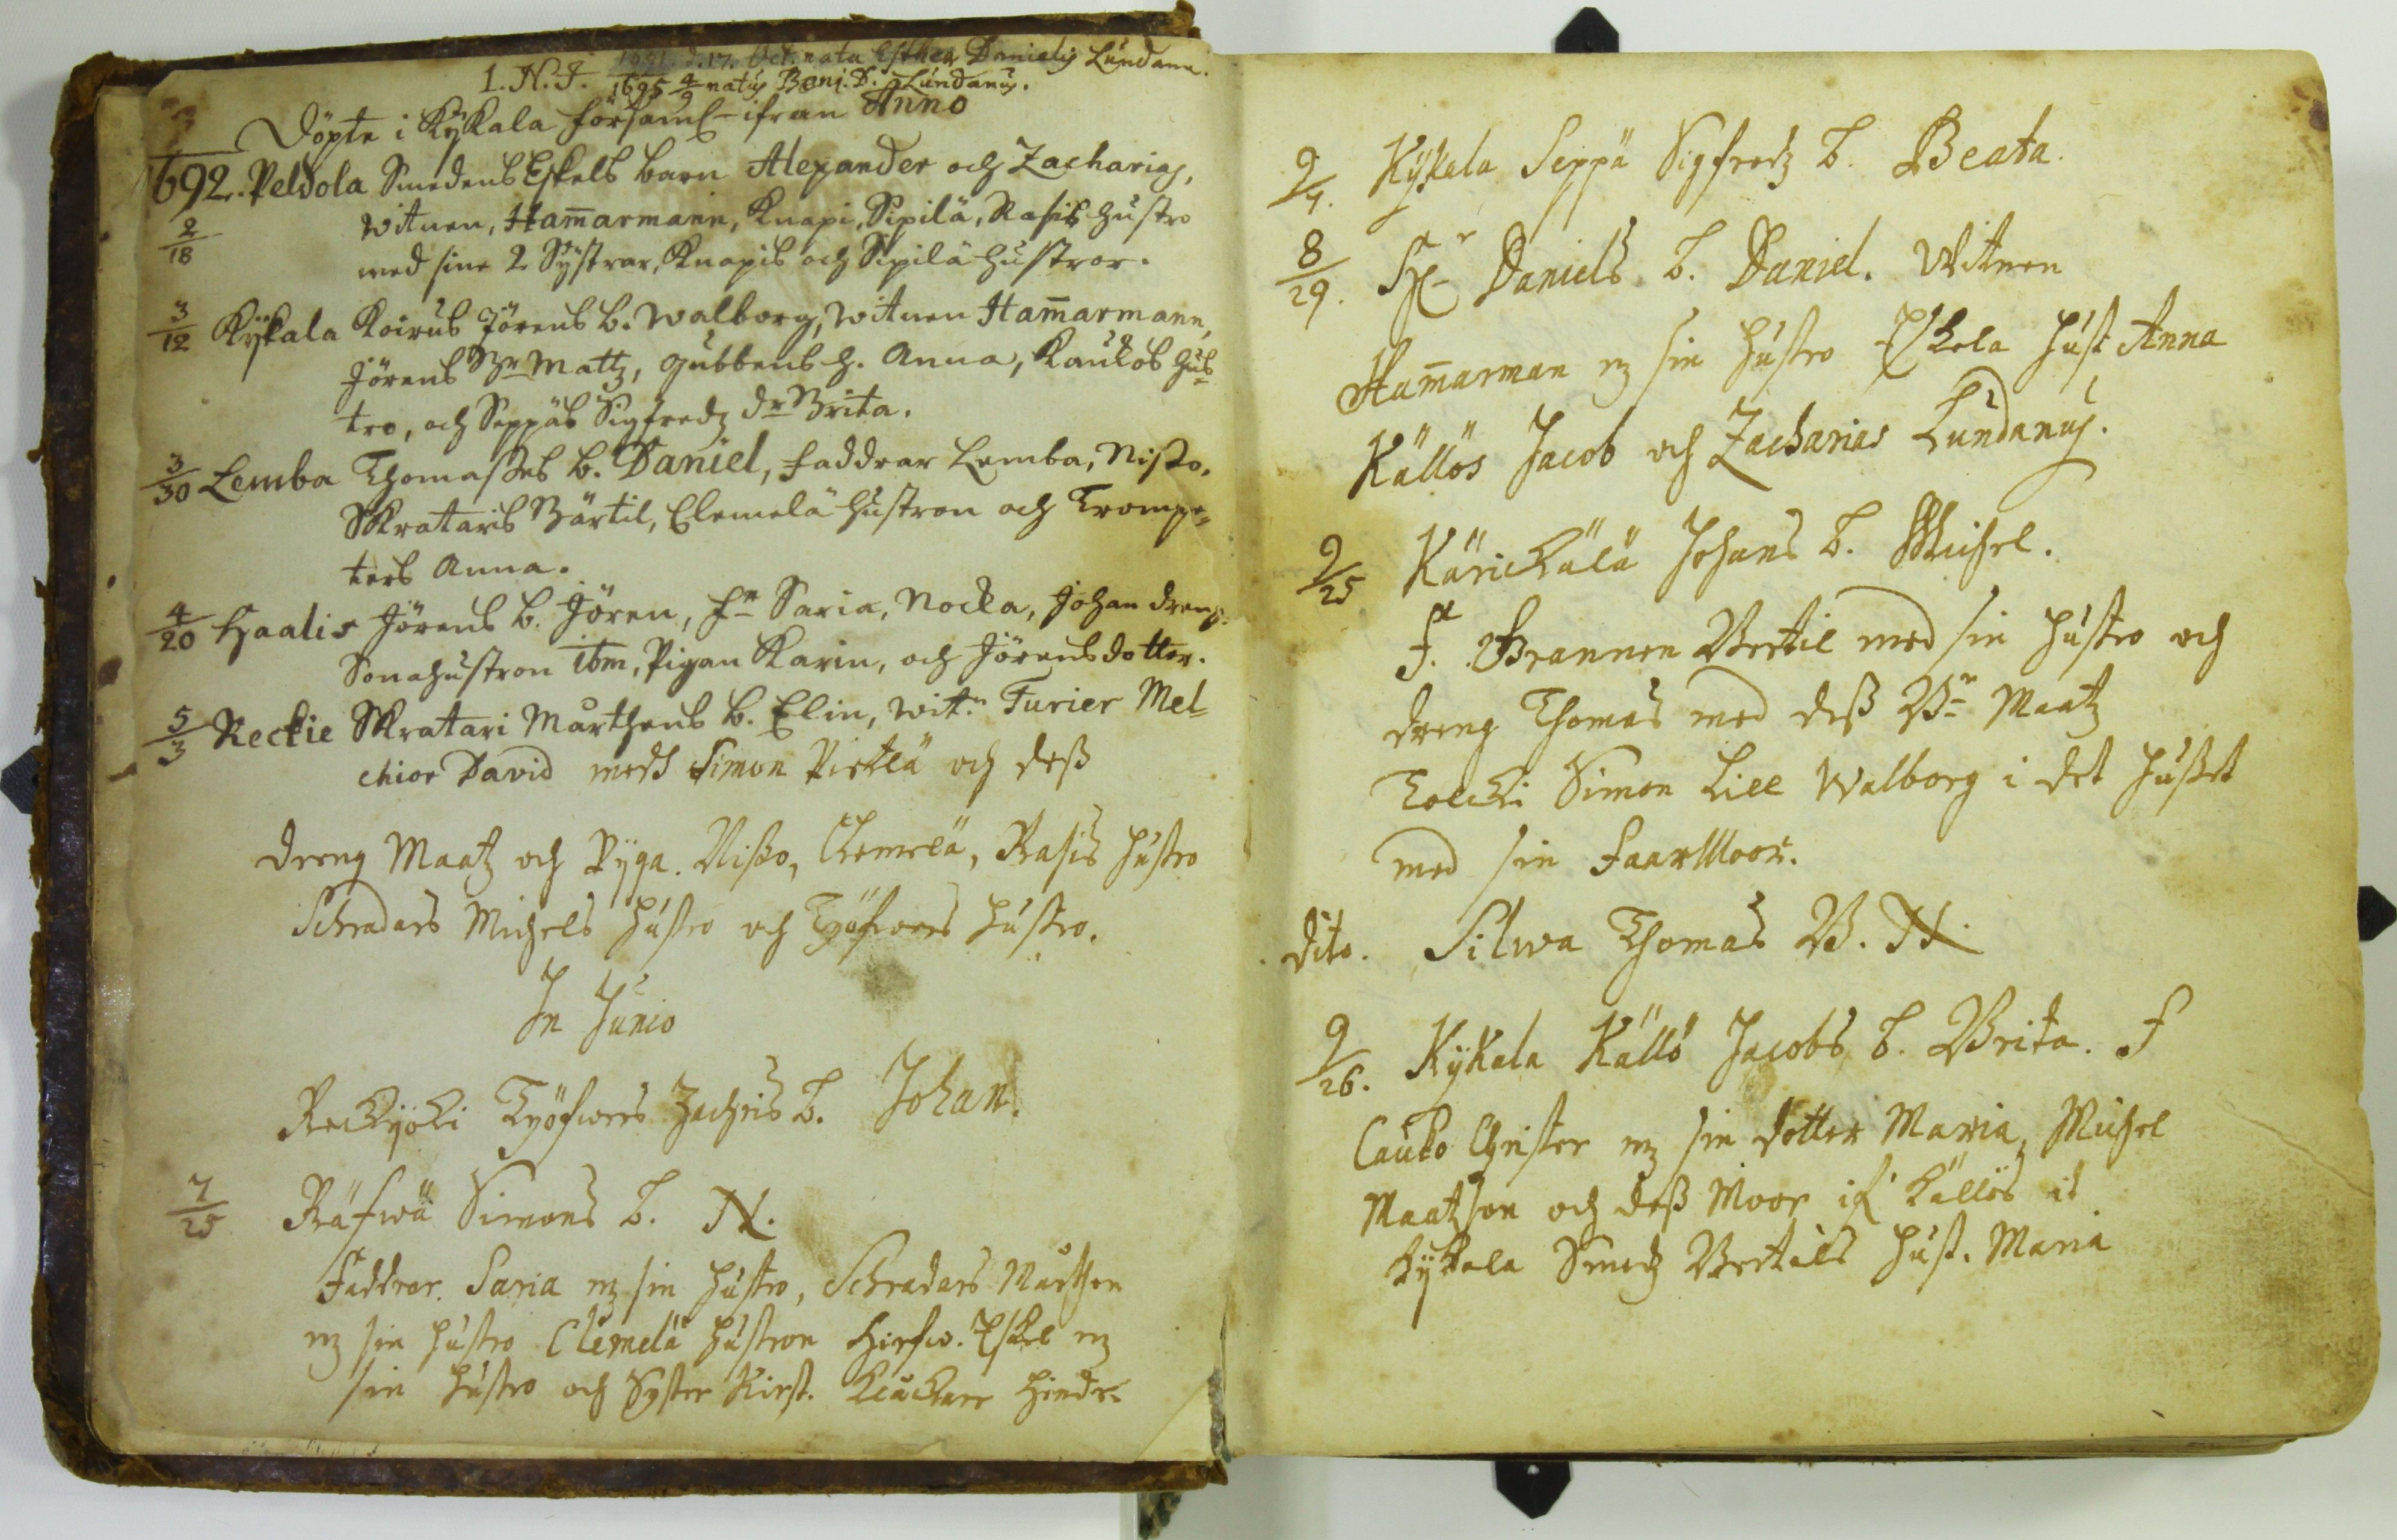 1691. d. 17. Oct. nata Esther Danielis Lundana.
1. N. J. 1695 4/9 natus Benj. D. Lundanus.
Döpte i Kÿkala församl- ifrån Anno
1692. Peldola Smedens Eskels barn Alexander och Zacharias,
2/18 witnen, Ham̅armann, Knapi, Sipilä, Rasis hustro
med sine 2 Sÿstrar, Knapis och Sipilä hustror.
3/12 Kÿkala Koirus Jörens b. Walborg, witnen Ham̅armann,
Jörens Br Mattz, gubbens h. Anna, Kaukos hus-
tro, och Seppäs Sigfredz dr Brita.
3/30 Lemba Thomasses b. Daniel, faddrar Lemba, Nisso,
Skrataris Bärtil, Clemelä hustron och Trompe-
ters Anna.
4/20 Haalis Jörens b. Jören, fr Saria, Nocka, Johan dreng.
Sonahustron ibm, Pigan Karin, och Jörens dotter.
5/3 Reckie Skratari Mårthens b. Elin, witn Furier Mel-
chior David medh Simon Pietlä och dess
dreng Maatz och Pÿga. Nisso, Clemelä, Rasis hustro
Schradars Michels hustro och Työfwers hustro.
In Junio
Reckÿoki Työfwers Zachris b. Johan.
7/25 Räfwä Simons b. N.
Faddrar. Saria mz sin hustro, Schradars Mårthen
mz sin hustro Clemelä hustron Hirfw. Eskel mz
sin hustro och Syster Kirst. Kluckare Hindr.
9/4. Kÿkala Seppä Sigfredz b. Beata.
8/29. Daniels b. Daniel. Witnen
Ham̅arman mz sin hustro Eskola hust Anna
Källös Jacob och Zacharias Lundanus.
9/25 Kärickälä Johans b. Michel.
F. Brannen Bertil med sin hustro och
dreng Thomas med dess Br Maatz
Tolcki Simon Lill Walborg i det husset
med sin faarMoor.
dito. Silwa Thomas B. N.
9/26. Kÿkala Källö Jacobs b. Brita. F
Cauko Christer mz sin dotter Maria, Michel
Maatzson och dess Moor if Källös it
Kÿkala Smedz Bertils hust. Maria